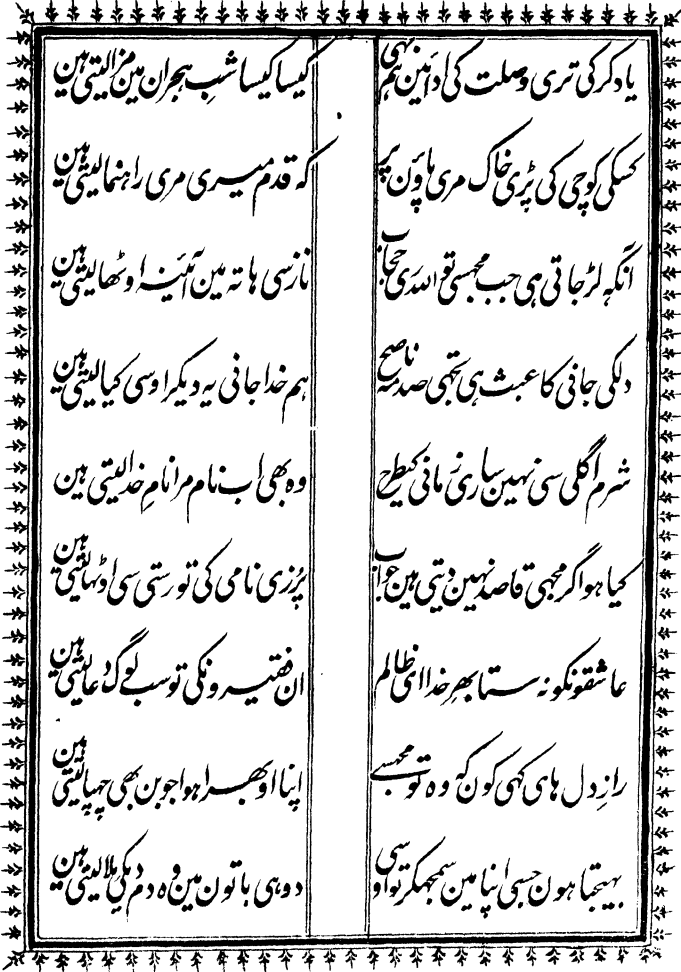 یاد کرکی تری وصلت کی ادائین ہم بہی کیسا کیسا شبِ ہجران مین مزا لیتی ہین
کسکی کوچی کی پڑی خاک مری پاؤن پر کہ قدم میری مری راہنما لیتی ہین
آنکہہ لڑ جاتی ہی جب مجہسی تو اللہ ری حجاب نازسی ہاتہ مین آئینہ اوٹھا لیتی ہین
دلکی جانی کا عبث ہی تجہی صدمہ ناصح ہم خدا جانی یہ دیکر اوسی کیا لیتی ہین
شرم اگلی سی نہین ساری زمانی کیطرح وہ بھی اب نام مرا نامِ خدا لیتی ہین
کیا ہوا گر مجہی قاصد نہین دیتی ہین جواب پُرزی نامی کی تو رستی سی اوٹہا لیتی ہین
عاشقونکو نہ ستا بہرِ خدا ای ظالم ان فقیرونکی تو سب لوگ دعا لیتی ہین
رازِ دل ہای کہی کون کہ وہ تو مجہسے اپنا اوبھرا ہوا جوبن بھی چہپا لیتی ہین
بہیجتا ہون جسی اپنا مین سمجہکر تو اوسی دو ہی باتون مین وہ دم دیکی ملا لیتی ہین